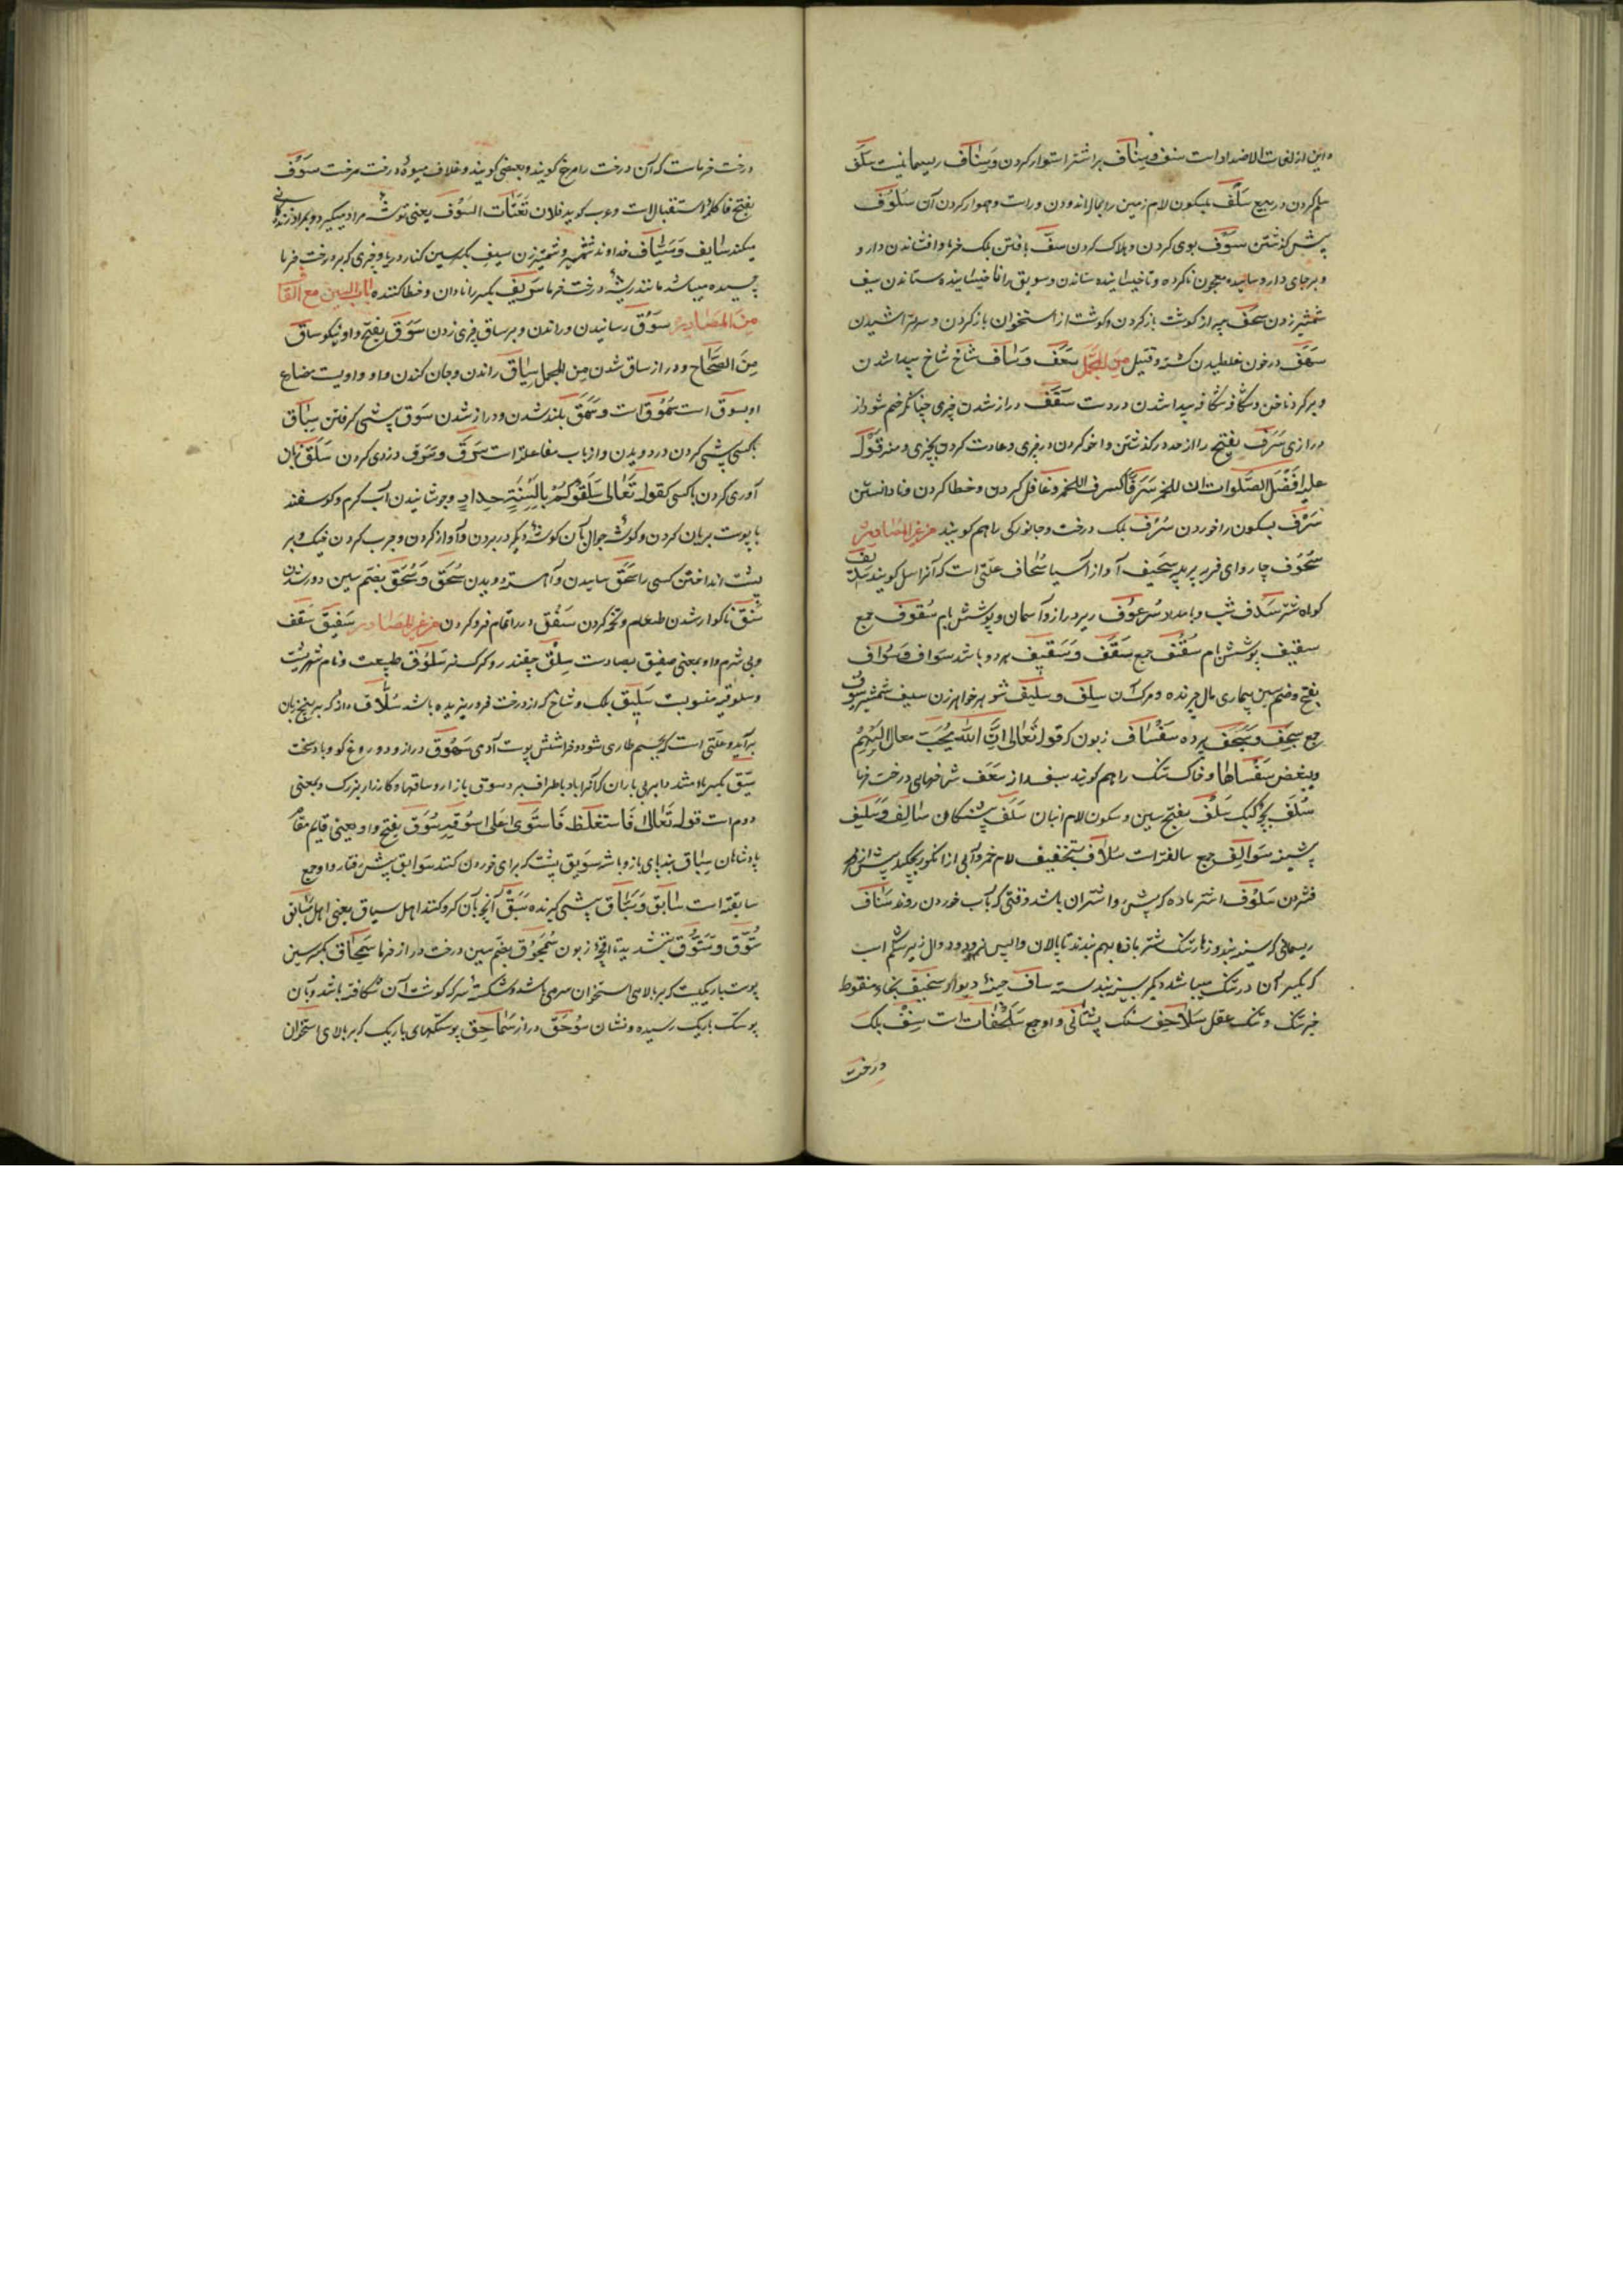 و این از لغات الاضداد است سنف و سناف بر اشتر استوار کردن و سناف ریسمانیست سلف
سلم کردن در بیع سلف بسکون لام زمین را بمال اندودن و راست و هموار کردن آن سلوف
پیش گذشتن سوف بوی کردن و هلاک کردن سف بافتن بلک خرما و افشاندن دارو
و بر جای دارو سائیده معجون ناکرده و ناخیسانیده ستاندن و سویق را ناخیسانیده ستاندن سیف
شمشیر زدن سحف پیه از گوشت باز کردن و گوشت از استخوان باز کردن و سر تراشیدن
درخون غلطیدن کشته و قتیل من المجمل سعف و ساف شاخ شاخ پیدا شدن
و بر گرد ناخن و شکاف شکاف پیدا شدن در دست سقف دراز شدن چیزی چنانکه خم شود از
درازی سرف بفتح را از حد درگذشتن و اخو کردن در چیزی و عادت کردن بچیزی و منه قوله
علیه افضل الصلوات ان للخمر سرفا کسرف اللخمر و غافل کردن و خطا کردن و نادانستن
سرف بسکون را خوردن سرف بلک درخت و جانورکی را هم گویند من غیر المصادر
سحوف چاروای فربه پر پیه سحیف آواز آسیا سحاف علتی است که آنرا سل گویند
کوتاه شتر سدف شب و بامداد سرعوف دراز و آسمان و پوشش بام سقوف جمع
سقیف پوشش بام سقف جمع سقف و سقیف هر دو باشد سواف و سواف
بفتح و ضم سین بیماری مال چرنده و مرگ آن سلف و سلیف شوهر خواهر زن سیف شمشیر سیوف
جمع سجف و سجف پرده سفساف زبون کر قوله تعالی ان الله یحب معالی الهمم
و یبغض سفسافها و خاک تنک را هم گویند سعف شاخهای درخت خرما
سلف بچه کبک سلف بفتح سین و سکون لام انبان سلف پیشینگان سالف و سلیف
پیشینه سوالف جمع سالفه است سلاف بتخفیف لام خمر و آبی از انگور بچکد پیش از
فشردن سلوف اشتر ماده که پیشرو اشتران باشد وقتی که بآب خوردن روند سناف
ریسمانی که سینه بند و تنک شتر با وی بهم بندند تا پالان واپس نرود و دوال زیر شکم اسب
که یکسر آن در تنک میباشد دیگر بسینه بند بسته ساف چینه دیوار سخیف بخاء منقوط
خیر تنک و تنک عقل سلاحف سنک پشتانی واو جمع سلحفات است سنف بلک
درخت
درخت خرماست که آن درخت را مرخ گویند و بعضی گویند و غلاف میوه درخت مرخت سوف
بفتح فا کلمه استقبال است و عرب گوید فلان تعتات السوف یعنی توشه مراد میگیرد و بمراد زندگانی
میکند سایف و سیاف خداوند شمشیر و شمشیر زن سیف بکسر سین کناره دریا و چیزی که بر درخت خرما
چسبیده میباشد مانند ریشه درخت خرما سریف بکسر را نادان و خطا کننده باب السین مع القاف
من المصادر سوق رسانیدن و راندن و بر ساق چیزی زدن سوق بفتح واو نیکو ساق
من الصحاح و دراز ساق شدن من المجمل سیاق راندن و جان کندن واو واویست مضارع
او یسوق است سموق است و سمق بلند شدن و دراز شدن سوق پیشی گرفتن سباق
با کسی پیشی کردن در دویدن و از باب مفاعله است سرق و سرق دزدی کردن سلق زبان
آوری کردن با کسی کقوله تعالی سلقوکم بالسنة حداد و جوشانیدن آب گرم و گوسفند
با پوست بریان کردن و گوشه جوال بآن گوشه دیگر در بردن و آواز کردن و چرب کردن خیک و بر
پشت انداختن کسی را سحق سائیدن و آهسته دویدن سحق و سحق بضم سین دور شدن
سنق ناگوار شدن طعام و تخمه کردن سفق در را تمام فرو کردن من غیر المصادر سفیق سقف
و بی شرم و او بمعنی صفیق بصادست سلق چغندر و گرگ نر سلوق طبیعت و نام شهریست
و سلوقیه منسوبست سلیق بلک و شاخ که از درخت فرو ریزیده باشد سلاق دانه که بر بیخ زبان
برآید و علتی است که بچشم طاری شود و خراشش پوست آدمی سهوق دراز و دروغ گو و باد سخت
سیق بکسر یاء مشدد ابر بی باران که آنرا باد باطراف برد سوق بازار و ساقها و کارزار بزرگ و بمعنی
دوم است قوله تعالی فاستغلظ فاستوی علی سوقه سوق بفتح واو یعنی قایم مقام
پادشاهان سباق بند پای باز و باشه سویق پست که برای خوردن کنند سوابق پیش رفتار واو جمع
سابقه است سابق و سباق پیشی گیرنده سبق آنچه بآن گرو کنند اهل سیاق یعنی اهل سابق
ستوق و ستوق بتشدید تا اقچه زبون سمحوق بضم سین درخت دراز خرما سمحاق بکسر سین
پوست باریکیست که بر بالای استخوان سر می باشد و شکسته سر که گوشت آن شکافته باشد و بآن
پوستک باریک رسیده و نشان سوحق دراز سماحق پوستکهای باریک که بر بالای استخوان